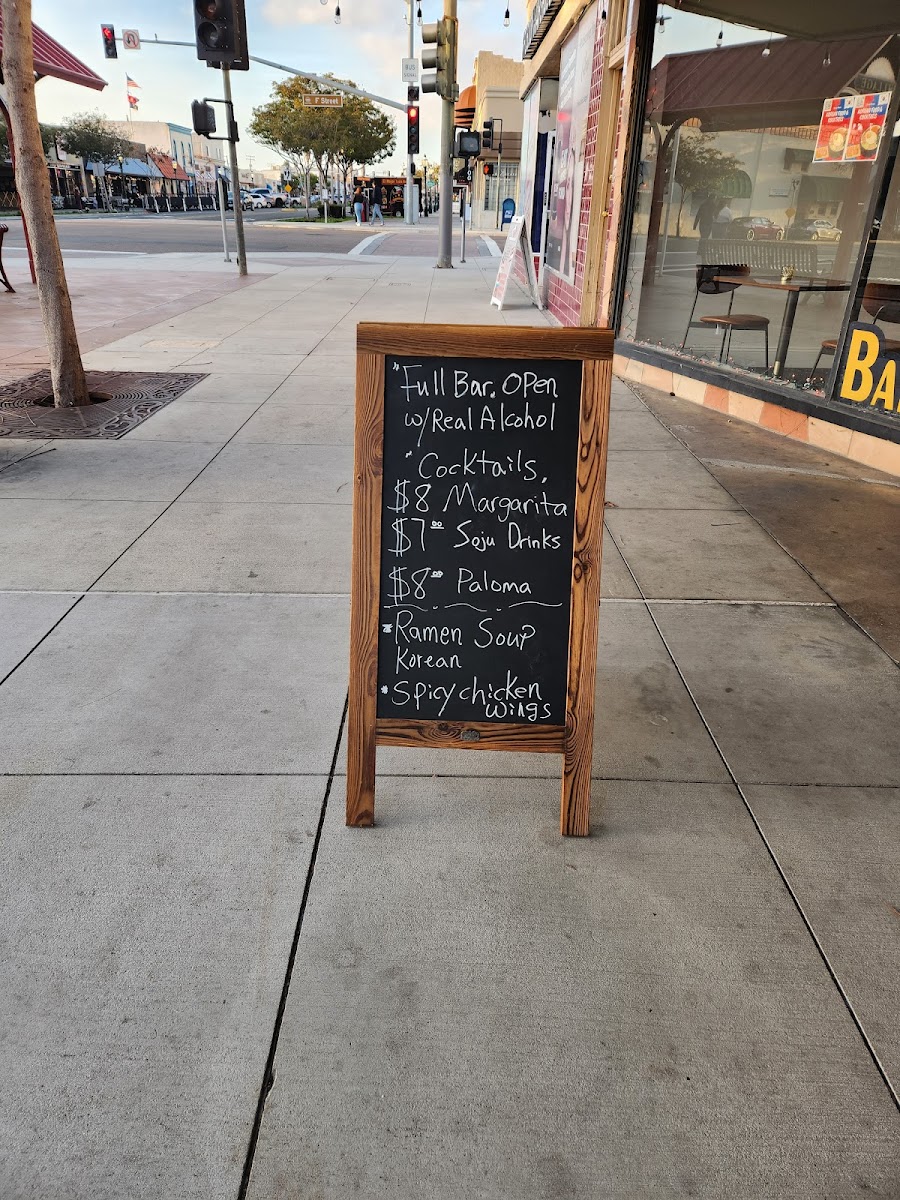 F Street
BUS
SIGNAL
" Full Bar. Open
w/Real Alcohol
" Cocktails.
$8 Margarita
$7.00 Soju Drinks
$8.00 Paloma
* Ramen Soup
Korean
* Spicy chicken
wings
BA